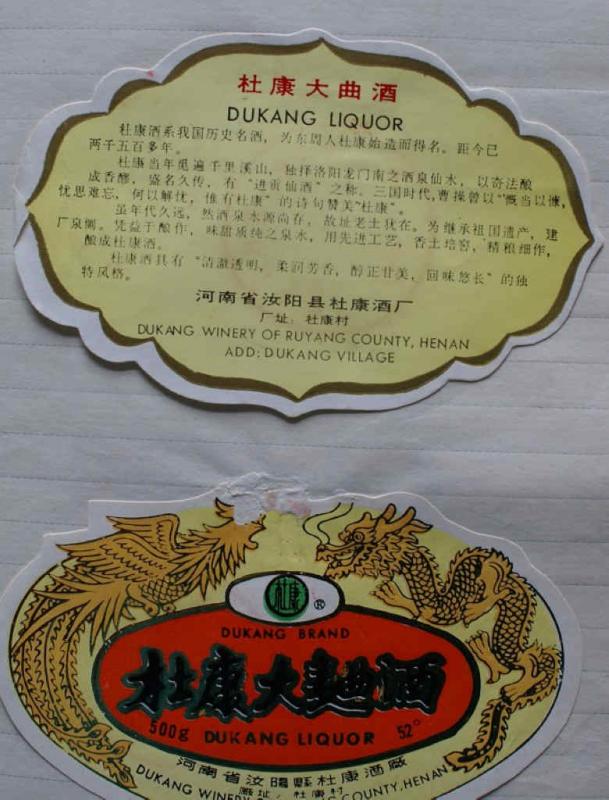 杜康大曲酒
DUKANG LIQUOR
杜康酒系我国历史名酒，为东周人杜康始造而得名。距今已
两千五百多年。
杜康当年觅遍千里溪山，独择洛阳龙门南之酒泉仙水，以奇法酿
成香醪，盛名久传，有“进贡仙酒”之称。三国时代，曹操曾以“慨当以慷，
忧思难忘，何以解忧，惟有杜康”的诗句赞美“杜康”。
虽年代久远，然酒泉水源尚存，故址老土犹在。为继承祖国遗产，建
厂泉侧。凭益于酿作，味甜质纯之泉水，用先进工艺，香土培窖，精粮细作，
酿成杜康酒。
杜康酒具有“清澈透明，柔润芳香，醇正甘美，回味悠长”的独
特风格。
河南省汝阳县杜康酒厂
厂址：杜康村
DUKANG WINERY OF RUYANG COUNTY, HENAN
ADD: DUKANG VILLAGE
杜康
®
DUKANG BRAND
杜康大麯酒
500g DUKANG LIQUOR 52°
河南省汝陽縣杜康酒廠
廠址：杜康村
DUKANG WINERY COUNTY, HENAN